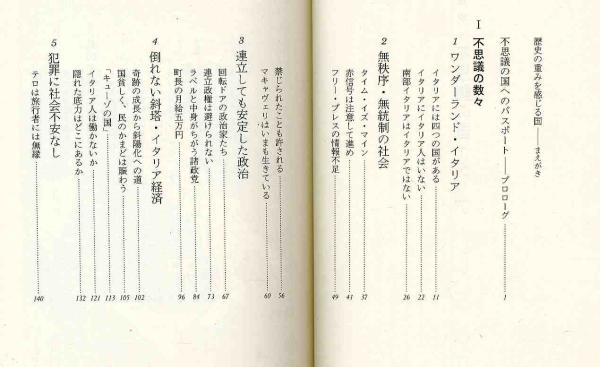 歴史の重みを感じる国——まえがき
不思議の国へのパスポート——プロローグ 1
I 不思議の数々
1 ワンダーランド・イタリア
イタリアには四つの国がある 11
イタリアにイタリア人はいない 22
南部イタリアはイタリアではない 26
2 無秩序・無統制の社会
タイム・イズ・マイン 37
赤信号は注意して進め 41
フリー・プレスの情報不足 49
禁じられたことも許される 56
マキャヴェリはいまも生きている 60
3 連立しても安定した政治
回転ドアの政治家たち 67
連立政権は避けられない 73
ラベルと中身がちがう諸政党 84
町長の月給五万円 96
4 倒れない斜塔・イタリア経済
奇跡の成長から斜陽化への道 102
国貧しく、民のかまどは賑わう 105
「キューゾの国」 113
イタリア人は働かないか 121
隠れた底力はどこにあるか 132
5 犯罪に社会不安なし
テロは旅行者には無縁 140